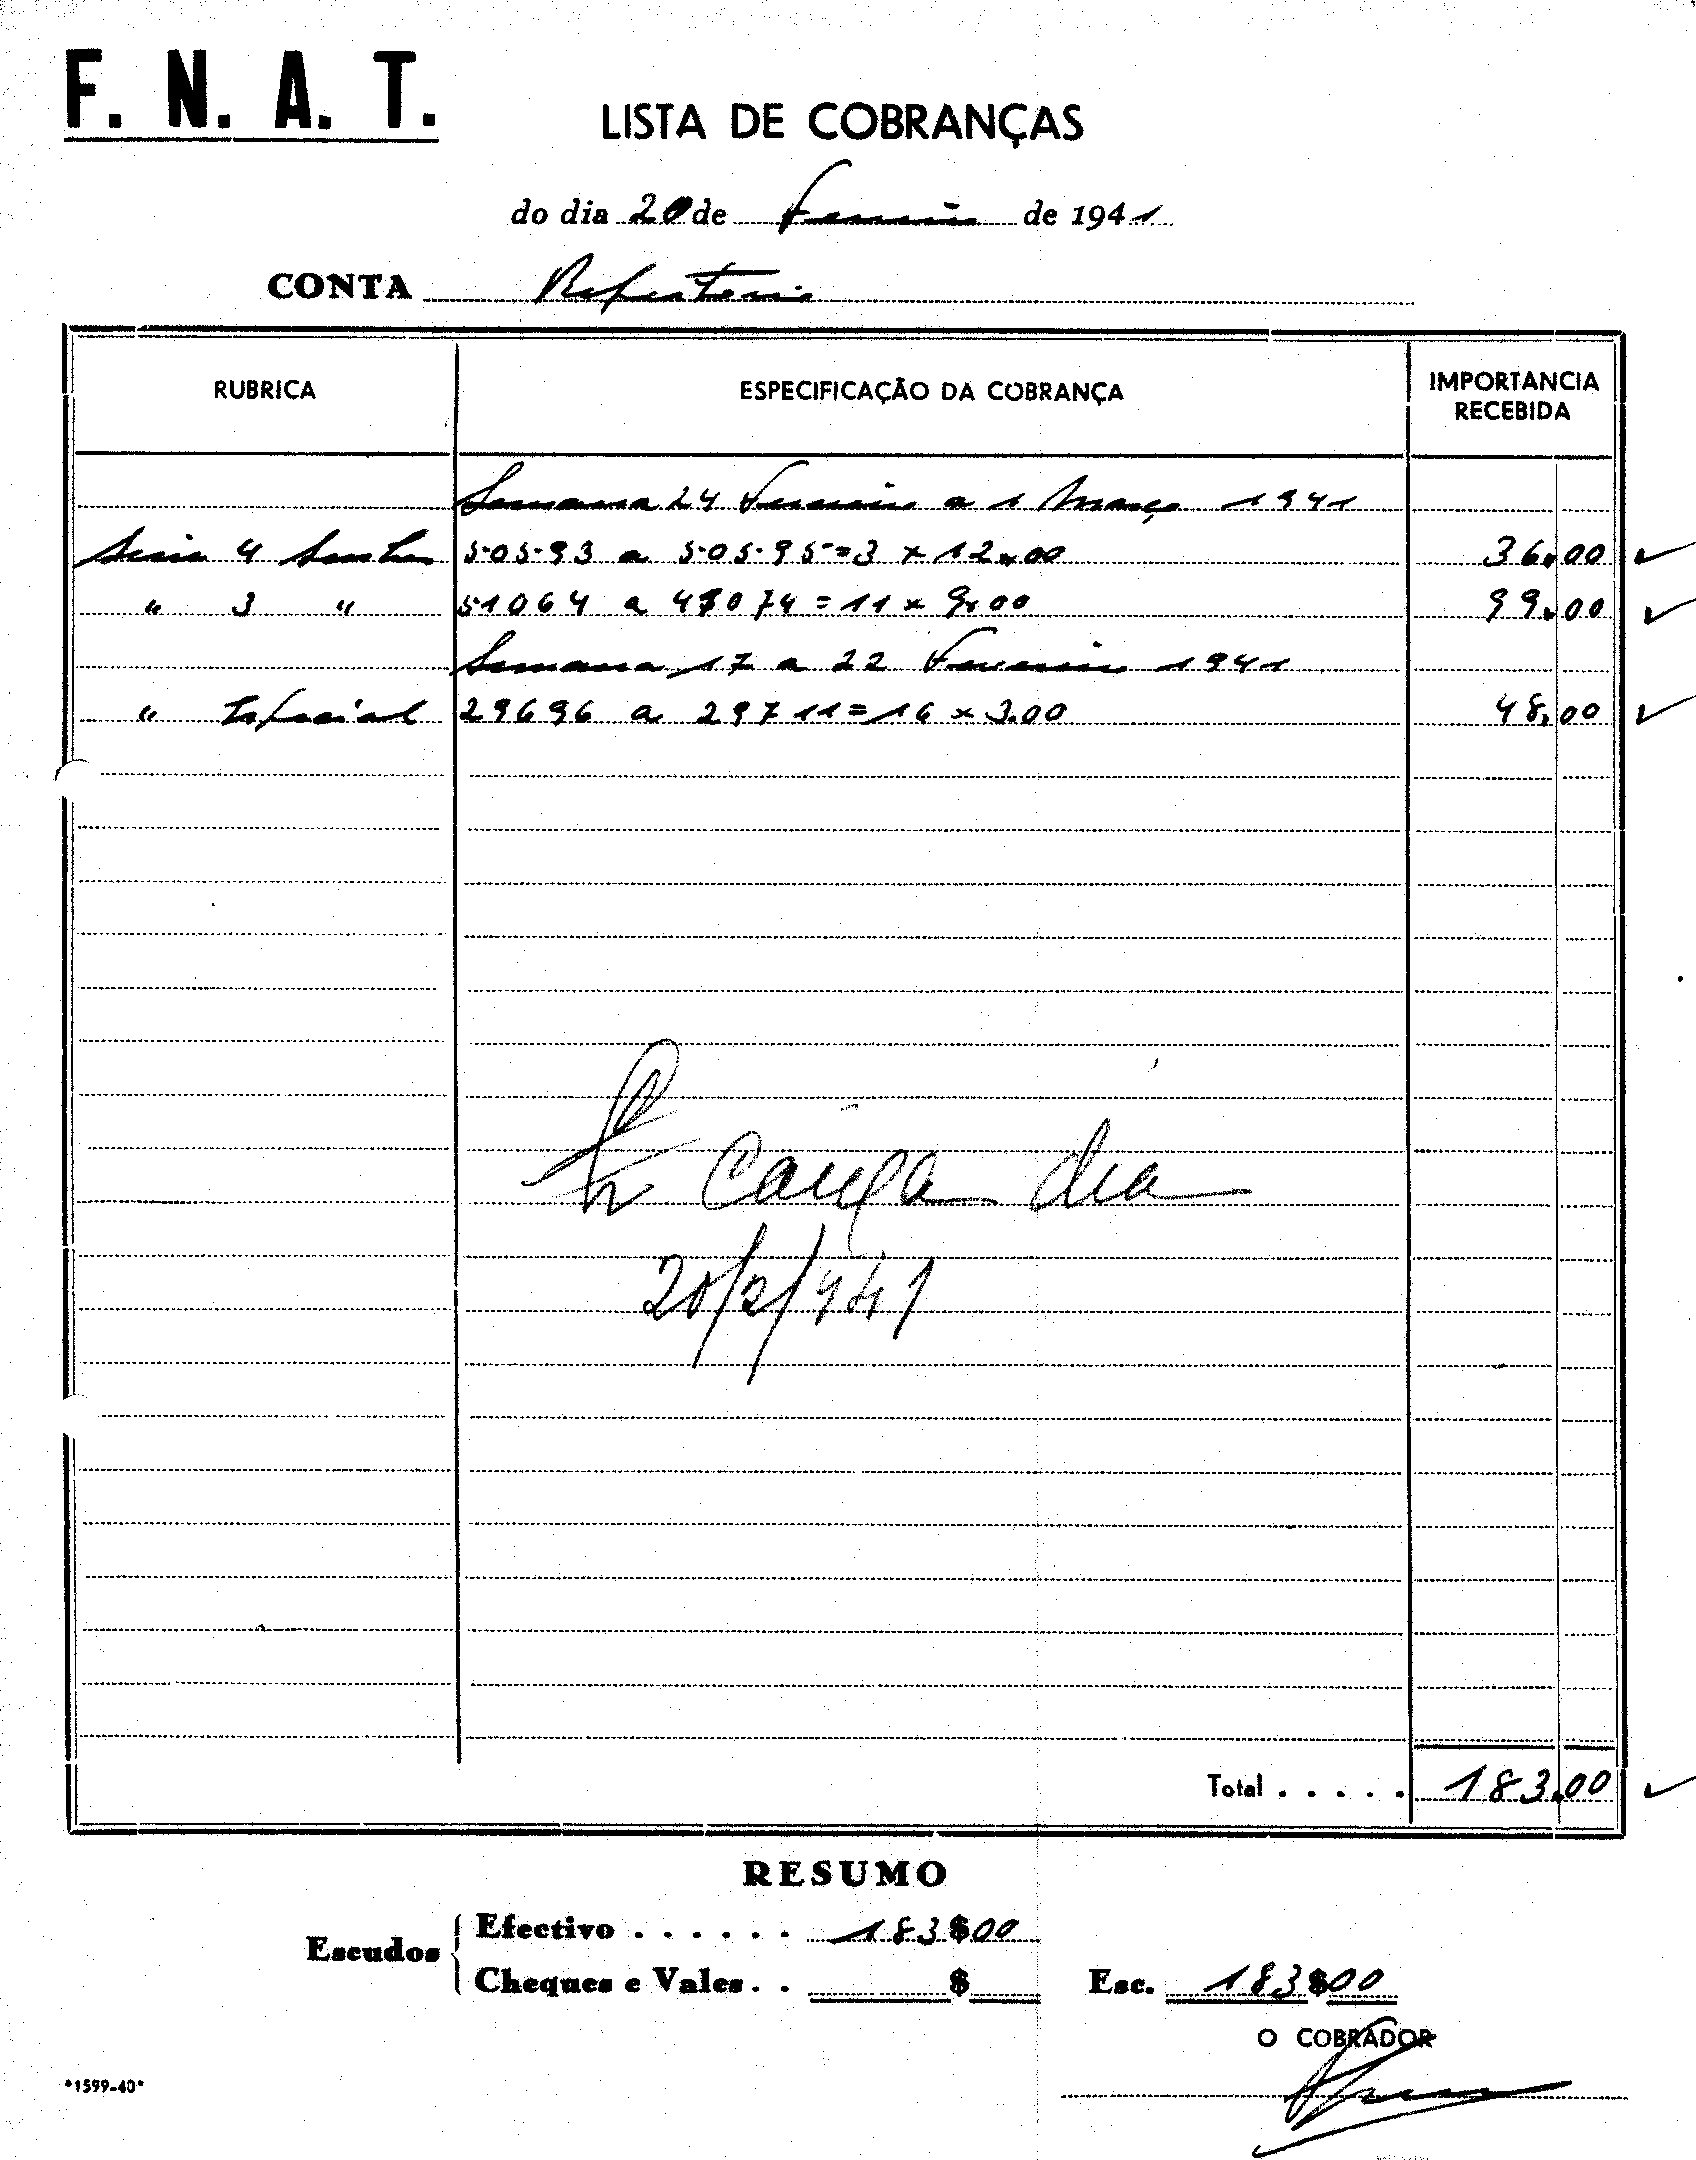 F. N. A. T.
LISTA DE COBRANÇAS
do dia 20 de Fevereiro de 1941
CONTA Refeitorio
RUBRICA ESPECIFICAÇÃO DA COBRANÇA IMPORTANCIA RECEBIDA
Semana 24 Fevereiro a 1 Março 1941
Serie 4 Senhas 50593 a 50595=3 x 12.00 36.00
" 3 " 51064 a 51074=11 x 9.00 99.00
Semana 17 a 22 Fevereiro 1941
" Especial 29696 a 29711=16 x 3.00 48.00
caixa dia
20/2/941
Total . . . . . 183.00
RESUMO
Escudos
Efectivo . . . . . . 183$00
Cheques e Vales . . $
Esc. 183$00
O COBRADOR
*1599-40*